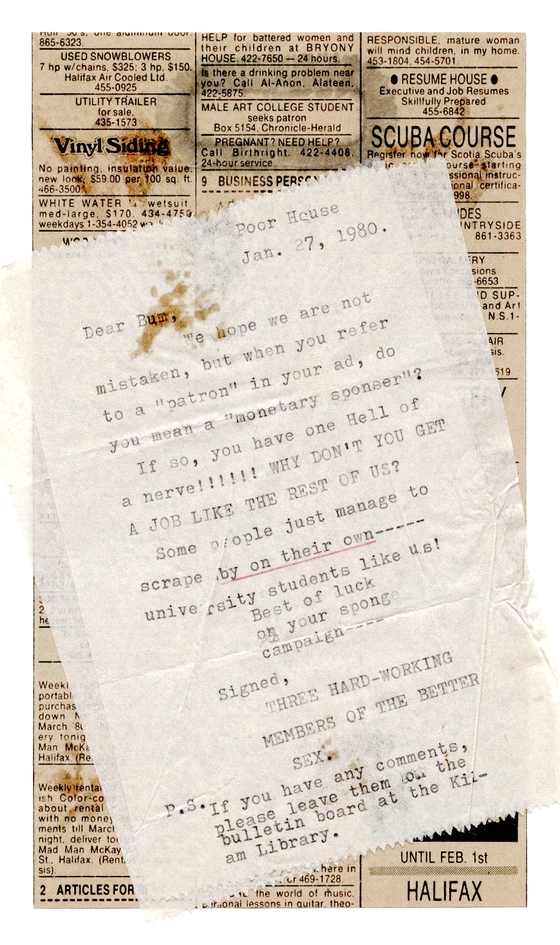 865-6323.
USED SNOWBLOWERS
7 hp w/chains, $325; 3 hp, $150.
Halifax Air Cooled Ltd.
455-0925
UTILITY TRAILER
for sale,
435-1573
Vinyl Siding
No painting, insulation value,
new look, $59.00 per 100 sq. ft.
466-3500
WHITE WATER wetsuit
med-large, $170. 434-4759
weekdays 1-354-4052
HELP for battered women and
their children at BRYONY
HOUSE. 422-7650 — 24 hours.
Is there a drinking problem near
you? Call Al-Anon, Alateen,
422-5875.
MALE ART COLLEGE STUDENT
seeks patron
Box 5154, Chronicle-Herald
PREGNANT? NEED HELP?
Call Birthright. 422-4408.
24-hour service
9 BUSINESS PERSON
RESPONSIBLE, mature woman
will mind children, in my home.
453-1804, 454-5701.
● RESUME HOUSE ●
Executive and Job Resumes
Skillfully Prepared
455-6842
SCUBA COURSE
Register now for Scotia Scuba's
course starting
ssional instruc-
onal certifica-
998.
DES
NTRYSIDE
861-3363
ERY
sions
-6653
D SUP-
and Art
N.S.1-
AIR
sis.
619
Poor House
Jan. 27, 1980.
Dear Bum,
We hope we are not
mistaken, but when you refer
to a "patron" in your ad, do
you mean a "monetary sponser"?
If so, you have one Hell of
a nerve!!!!!! WHY DON'T YOU GET
A JOB LIKE THE REST OF US?
Some people just manage to
scrape by on their own-----
university students like us!
Best of luck
on your sponge
campaign----
Signed,
THREE HARD-WORKING
MEMBERS OF THE BETTER
SEX.
P.S. If you have any comments,
please leave them on the
bulletin board at the Kil-
am Library.
Weekl
portabl
purchas
down N
March '80
ery tonig
Man McKa
Halifax. (Re
Weekly renta
ish Color-co
about rental
with no money
ments till March
night, deliver to
Mad Man McKay
St., Halifax. (Rent
sis).
2 ARTICLES FOR
where in
or 469-1728.
the world of music,
personal lessons in guitar, theo-
UNTIL FEB. 1st
HALIFAX